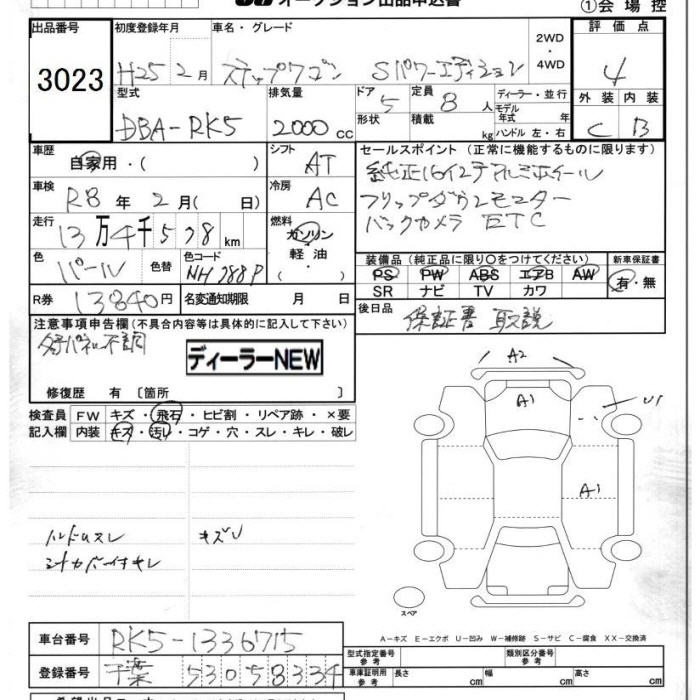 オークション出品申込書
①会場控
出品番号 初度登録年月 車名・グレード 2WD・4WD 評価点
3023 H25 2月 ステップワゴン Sパワーエディション 4
型式 排気量 ドア 5 定員 8人 ディーラー・並行 外装 内装
DBA-RK5 2000cc 形状 積載 kg モデル年式 年 ハンドル 左・右 C B
車歴 自家用・( ) シフト AT セールスポイント (正常に機能するものに限ります)
純正16インチアルミホイール
車検 R8年 2月( 日) 冷房 AC フリップダウンモニター
走行 13万4千578km 燃料 ガソリン・軽油・ バックカメラ ETC
色 パール 色替 色コード NH788P
装備品 (純正品に限り○をつけてください) 新車保証書
PS PW ABS エアB AW 有・無
SR ナビ TV カワ
R券 13840円 名変通知期限 月 日 後日品 保証書 取説
注意事項申告欄(不具合内容等は具体的に記入して下さい)
不調
ディーラーNEW
修復歴 有 〔箇所 〕
検査員 FW キズ・飛石・ヒビ割・リペア跡・×要
記入欄 内装 キズ・汚レ・コゲ・穴・スレ・キレ・破レ
A2
A1
U1
A1
ハンドルスレ キズU
スペア
A-キズ E-エクボ U-凹み W-補修跡 S-サビ C-腐食 XX-交換済
車台番号 RK5-1336715 型式指定番号 参考 類別区分番号 参考
登録番号 千葉 530 5 8334 車庫証明用 参考 長さ cm 幅 cm 高さ cm